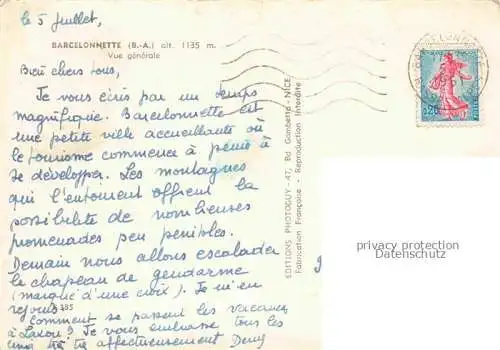 le 5 juillet,
BARCELONNETTE (B.-A.) alt. 1135 m.
Vue générale
Bien chers tous,
Je vous écris par un temps
magnifique. Barcelonnette est
une petite ville accueillante où
le tourisme commence à peine à
se développer. Les montagnes
qui l'entourent offrent la
possibilité de nombreuses
promenades peu pénibles.
Demain nous allons escalader
le chapeau de gendarme
(marqué d'une croix). Je m'en
réjouis.
385
Comment se passent les vacances
à Laxou ? Je vous embrasse tous les
cinq très très affectueusement Deny
EDITIONS PHOTOGUY 47, Bd Gambetta - NICE
Fabrication Française - Reproduction Interdite
0,20
privacy protection
Datenschutz